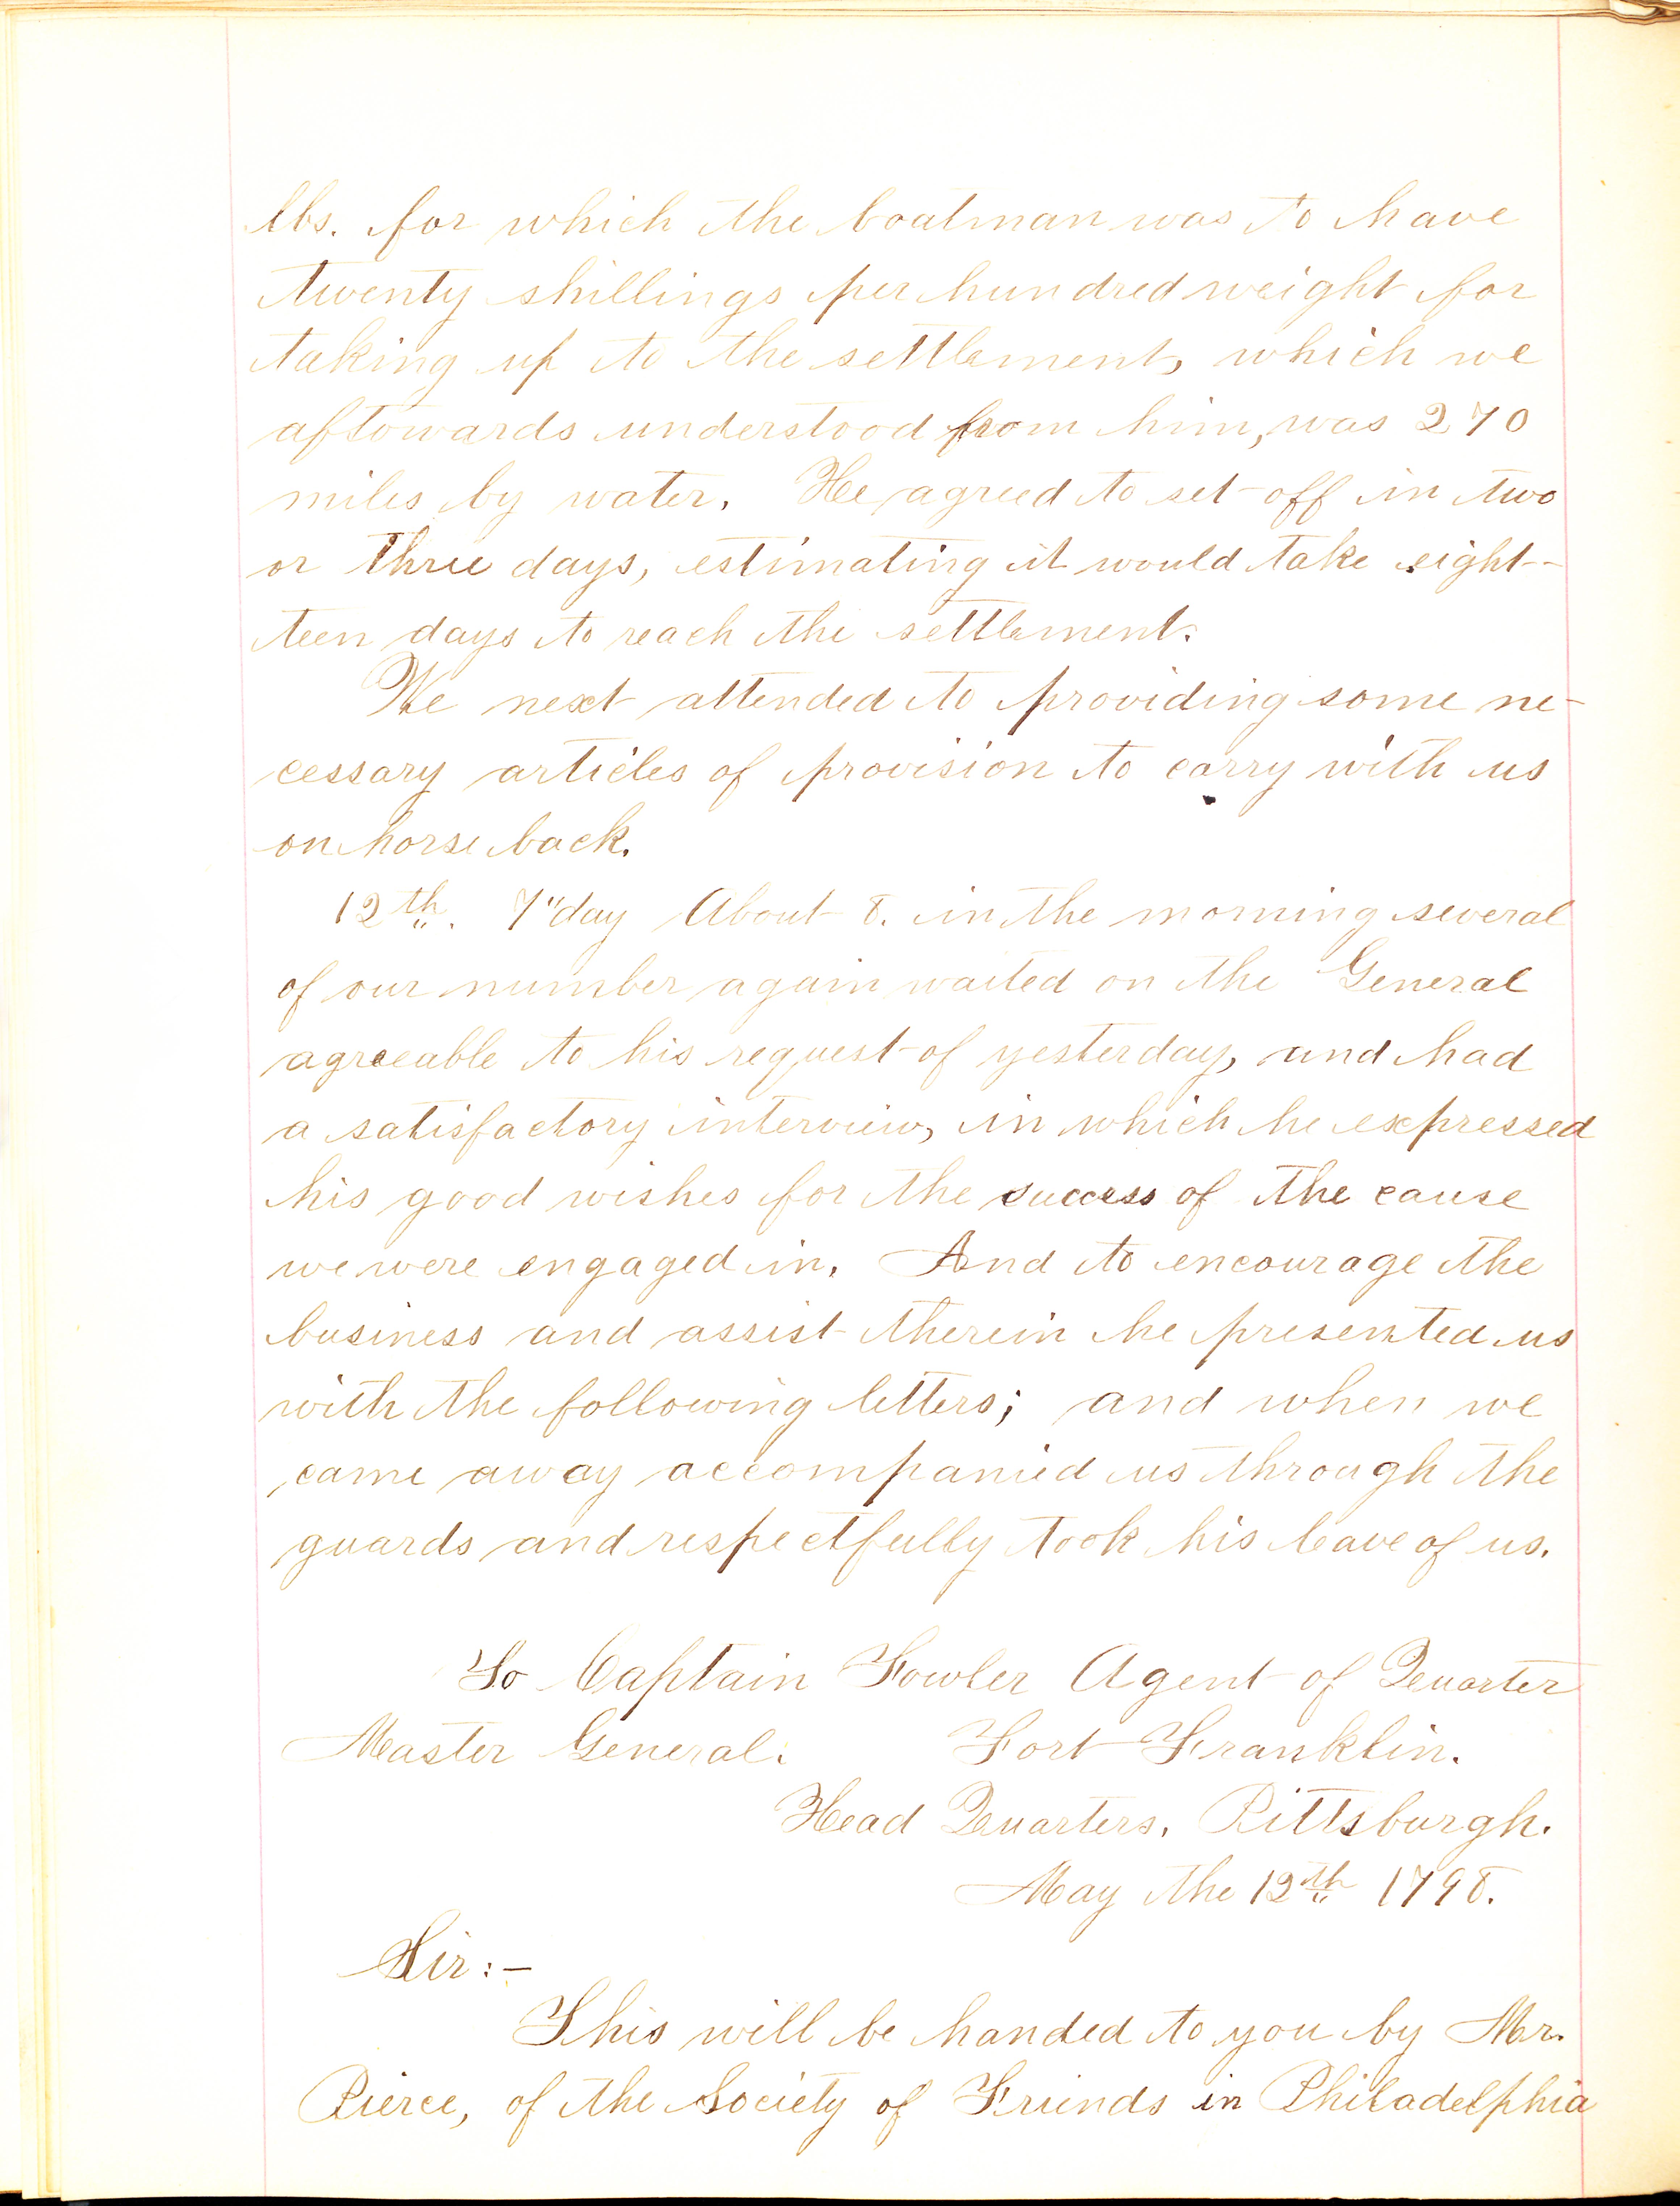 lbs. for which the boatman was to have
twenty shillings per hundred weight for
taking up to the settlement, which we
aftowards understood from him, was 270
miles by water. He agreed to set off in two
or three days, estimating it would take eight-
teen days to reach the settlement.
We next attended to providing some ne-
cessary articles of provision to carry with us
on horse back.
12th. 7"day About 8. in the morning several
of our number again waited on the General
agreeable to his request of yesterday, and had
a satisfactory interview, in which he expressed
his good wishes for the success of the cause
we were engaged in. And to encourage the
business and assist therein he presented us
with the following letters; and when we
came away accompanied us through the
guards and respectfully took his leave of us.
To Captain Fowler Agent of Quarter
Master General. Fort Franklin.
Head Quarters, Pittsburgh.
May the 12th 1798.
Sir:-
This will be handed to you by Mr.
Pierce, of the Society of Friends in Philadelphia